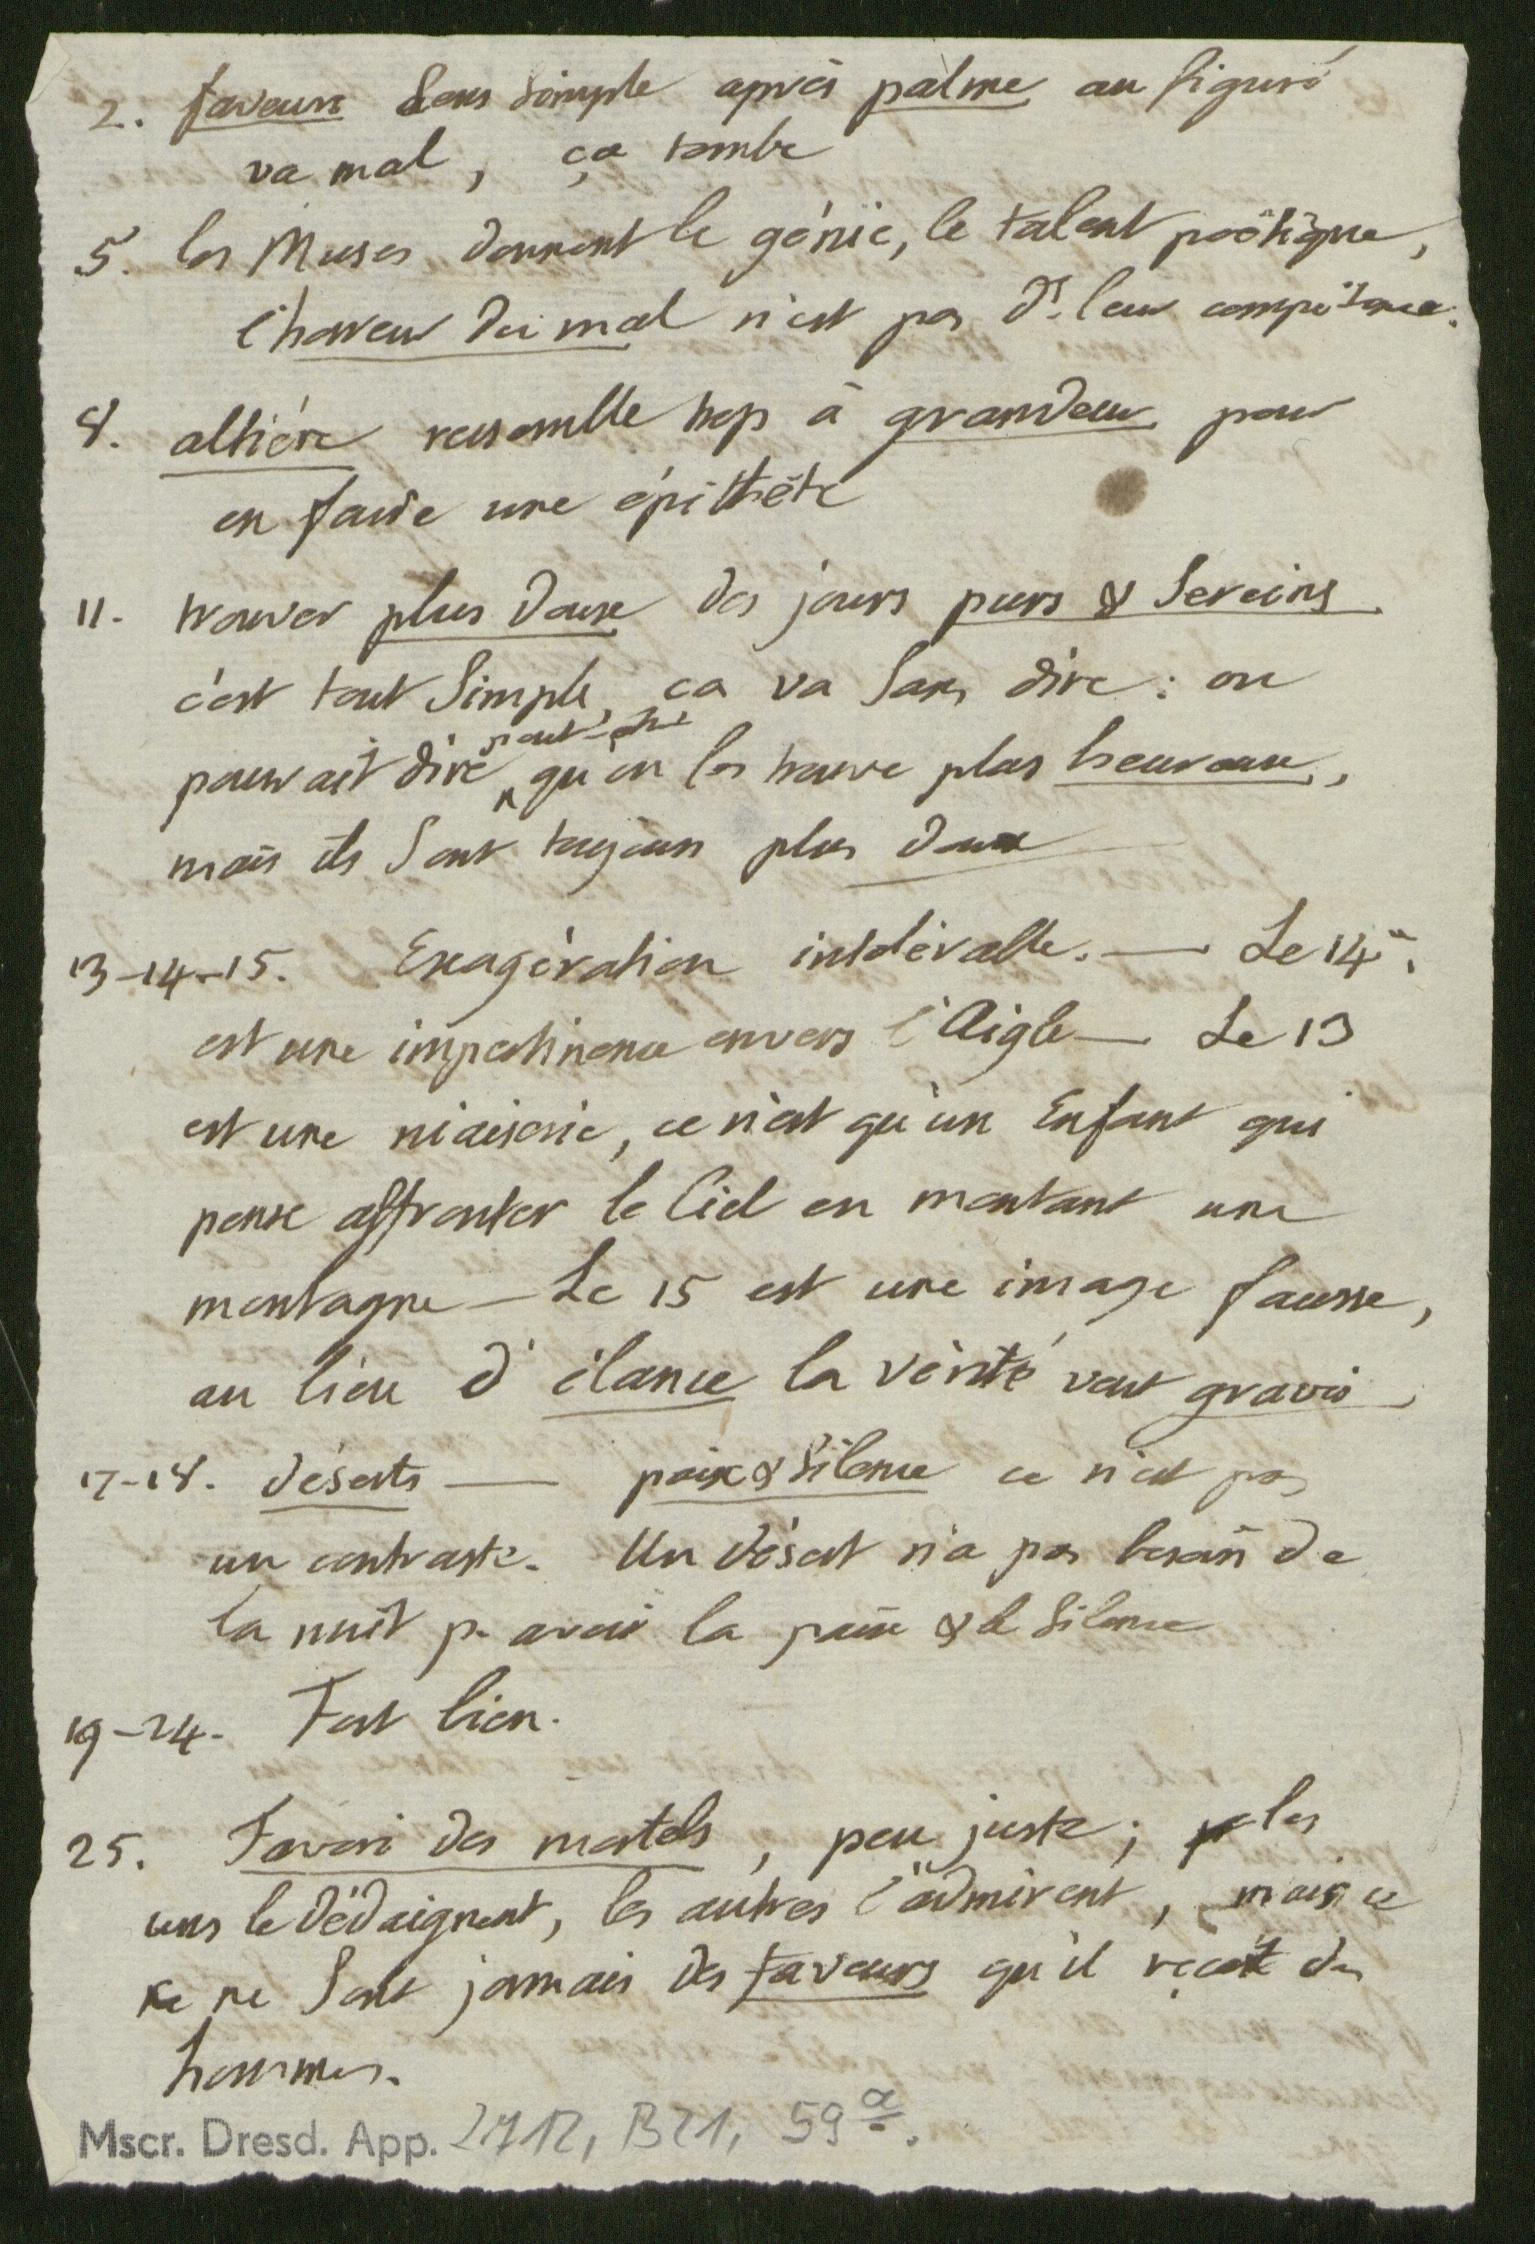 2. faveurs Sens simple après palme au figuré
va mal, ça tombe
5. les Muses donnent le génie, le talent poëtique,
l'horreur du mal n'est pas ds. leur compétence.
8. altière ressemble trop à grandeur pour
en faire une épithète
11. trouver plus doux des jours purs & Sereins
c'est tout Simple, ça va Sans dire : on
peut-être
pouvait dire qu'on les trouve plus heureux,
mais ils Sont toujours plus doux
13-14-15. Exagération intolérable. — Le 14e.
est une impertinence envers l'Aigle — Le 13
est une niaiserie, ce n'est qu'un Enfant qui
pense affronter le Ciel en montant une
montagne — Le 15 est une image fausse,
au lieu d'élance la vérité veut gravir
17-18. déserts — paix & Silence ce n'est pas
un contraste. Un désert n'a pas besoin de
la nuit p. avoir la paix & le Silence
19-24. Fort bien.
25. Favori des mortels, peu juste ; les
uns le dédaignent, les autres l'admirent, mais ce
ne Sont jamais des faveurs qu'il reçoit des
hommes.
Mscr. Dresd. App. 2712, B21, 59a.